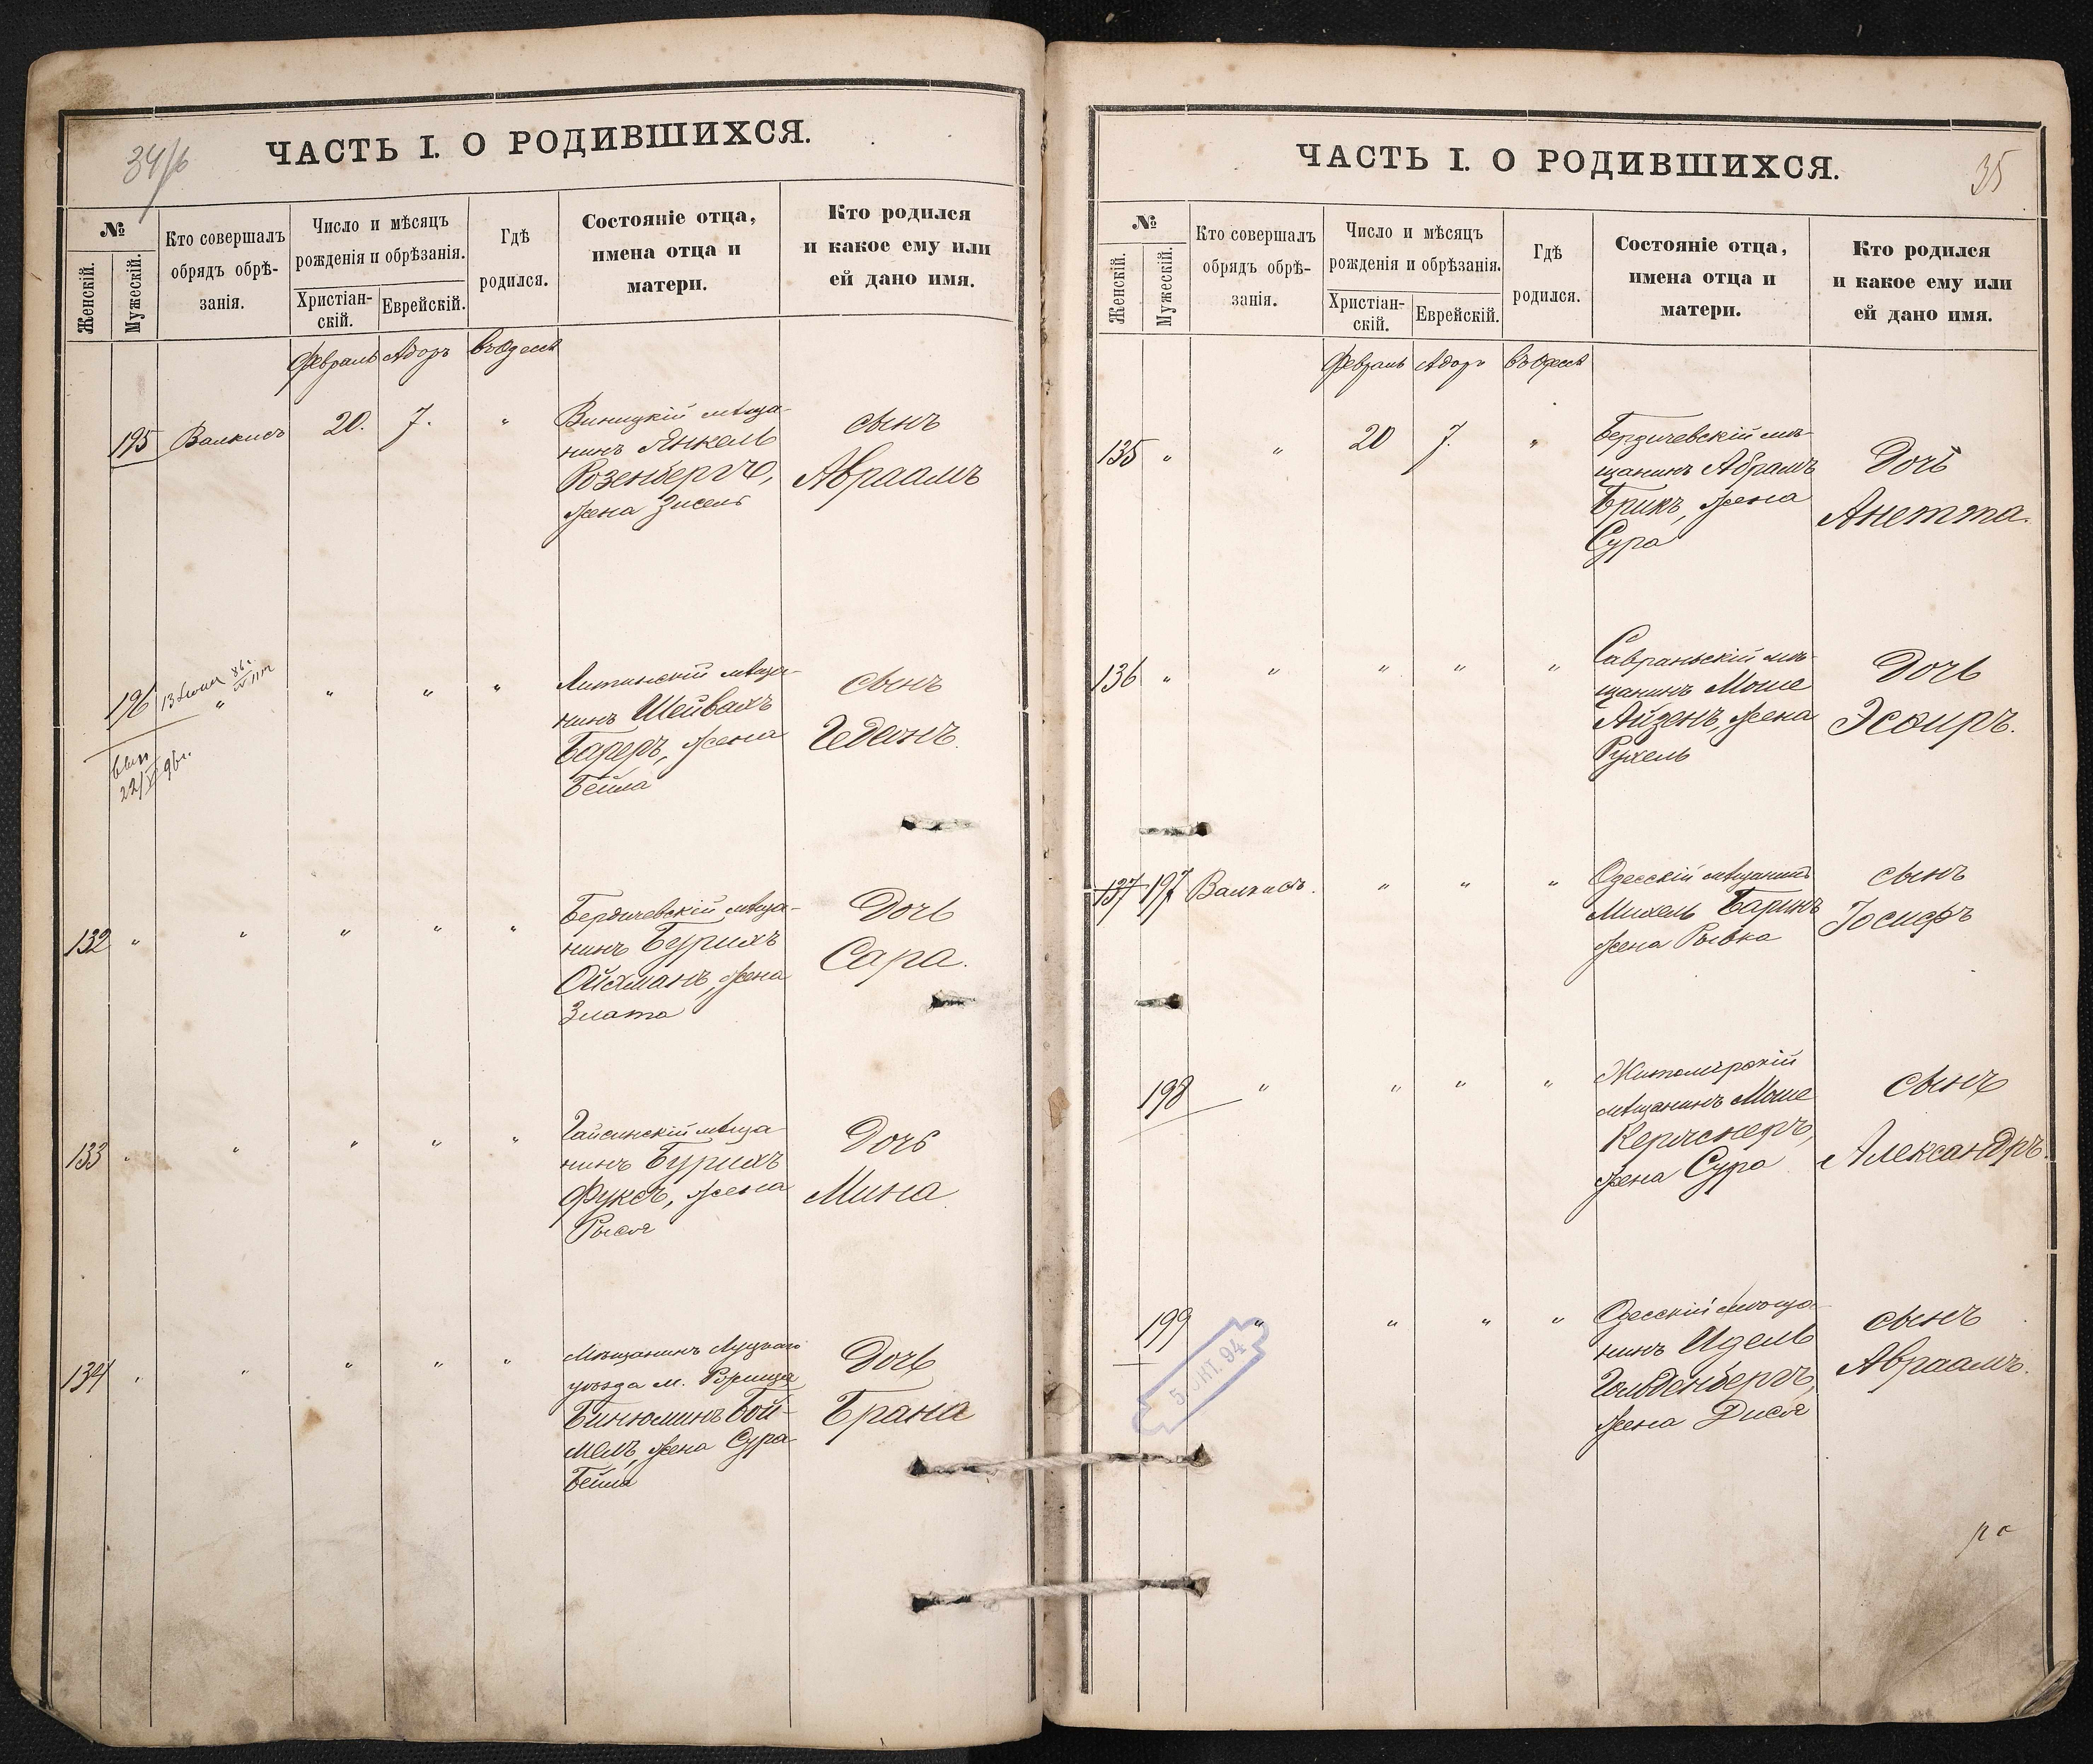 34/б
ЧАСТЬ I. О РОДИВШИХСЯ.
№
Женскій.
Мужескій.
Кто совершалъ
обрядъ обрѣ-
занія.
Число и мѣсяцъ
рожденія и обрѣзанія.
Христіан-
скій.
Еврейскій.
Гдѣ
родился.
Состояніе отца,
имена отца и
матери.
Кто родился
и какое ему или
ей дано имя.
Февраль Адоръ въ Одессѣ
195 Валкисъ 20. 7. "
Виницкій мѣща-
нинъ Янкель
Розенбергъ,
жена Зисель
сынъ
Авраамъ
196 " " " "
22/V 96г.
Литинскій мѣща-
нинъ Шейвахъ
жена
Бейла
сынъ
Гедань.
132 " " " " "
Бердичевскій мѣща-
нинъ Бурихъ
Ойхманъ, жена
Злата
Дочь
Сара.
133 " " " " "
Гайсинскій мѣща-
нинъ Бурихъ
Фуксъ, жена
Рыся
Дочь
Мина
134 " " " " "
Мѣщанинъ Луцкаго
уѣзда м. Рорища
Бинюминъ Бой-
мелъ, жена Сура
Бейла
Дочь
Брана
35
ЧАСТЬ I. О РОДИВШИХСЯ.
№
Женскій.
Мужескій.
Кто совершалъ
обрядъ обрѣ-
занія.
Число и мѣсяцъ
рожденія и обрѣзанія.
Христіан-
скій.
Еврейскій.
Гдѣ
родился.
Состояніе отца,
имена отца и
матери.
Кто родился
и какое ему или
ей дано имя.
Февраль Адоръ въ Одессѣ
135 " " 20 7. "
Бердичевскій мѣ-
щанинъ Абрамъ
Брикъ, жена
Сура
Дочь
Анетта.
136 " " " " "
Савраньскій мѣ-
щанинъ Моше
Айзенъ, жена
Рухель
Дочь
Эсѳиръ.
137 197 Валкисъ. " " "
Одесскій мѣщанинъ
Михель Баринъ
жена Рывка
сынъ
Іосифъ
198 " " " "
Житомірскій
мѣщанинъ Моше
Керчнеръ,
жена Сура
сынъ
Александръ.
199 " " " "
5 ОКТ. 94
Одесскій мѣща-
нинъ Идель
Гольденбергъ,
жена Дися
сынъ
Авраамъ.